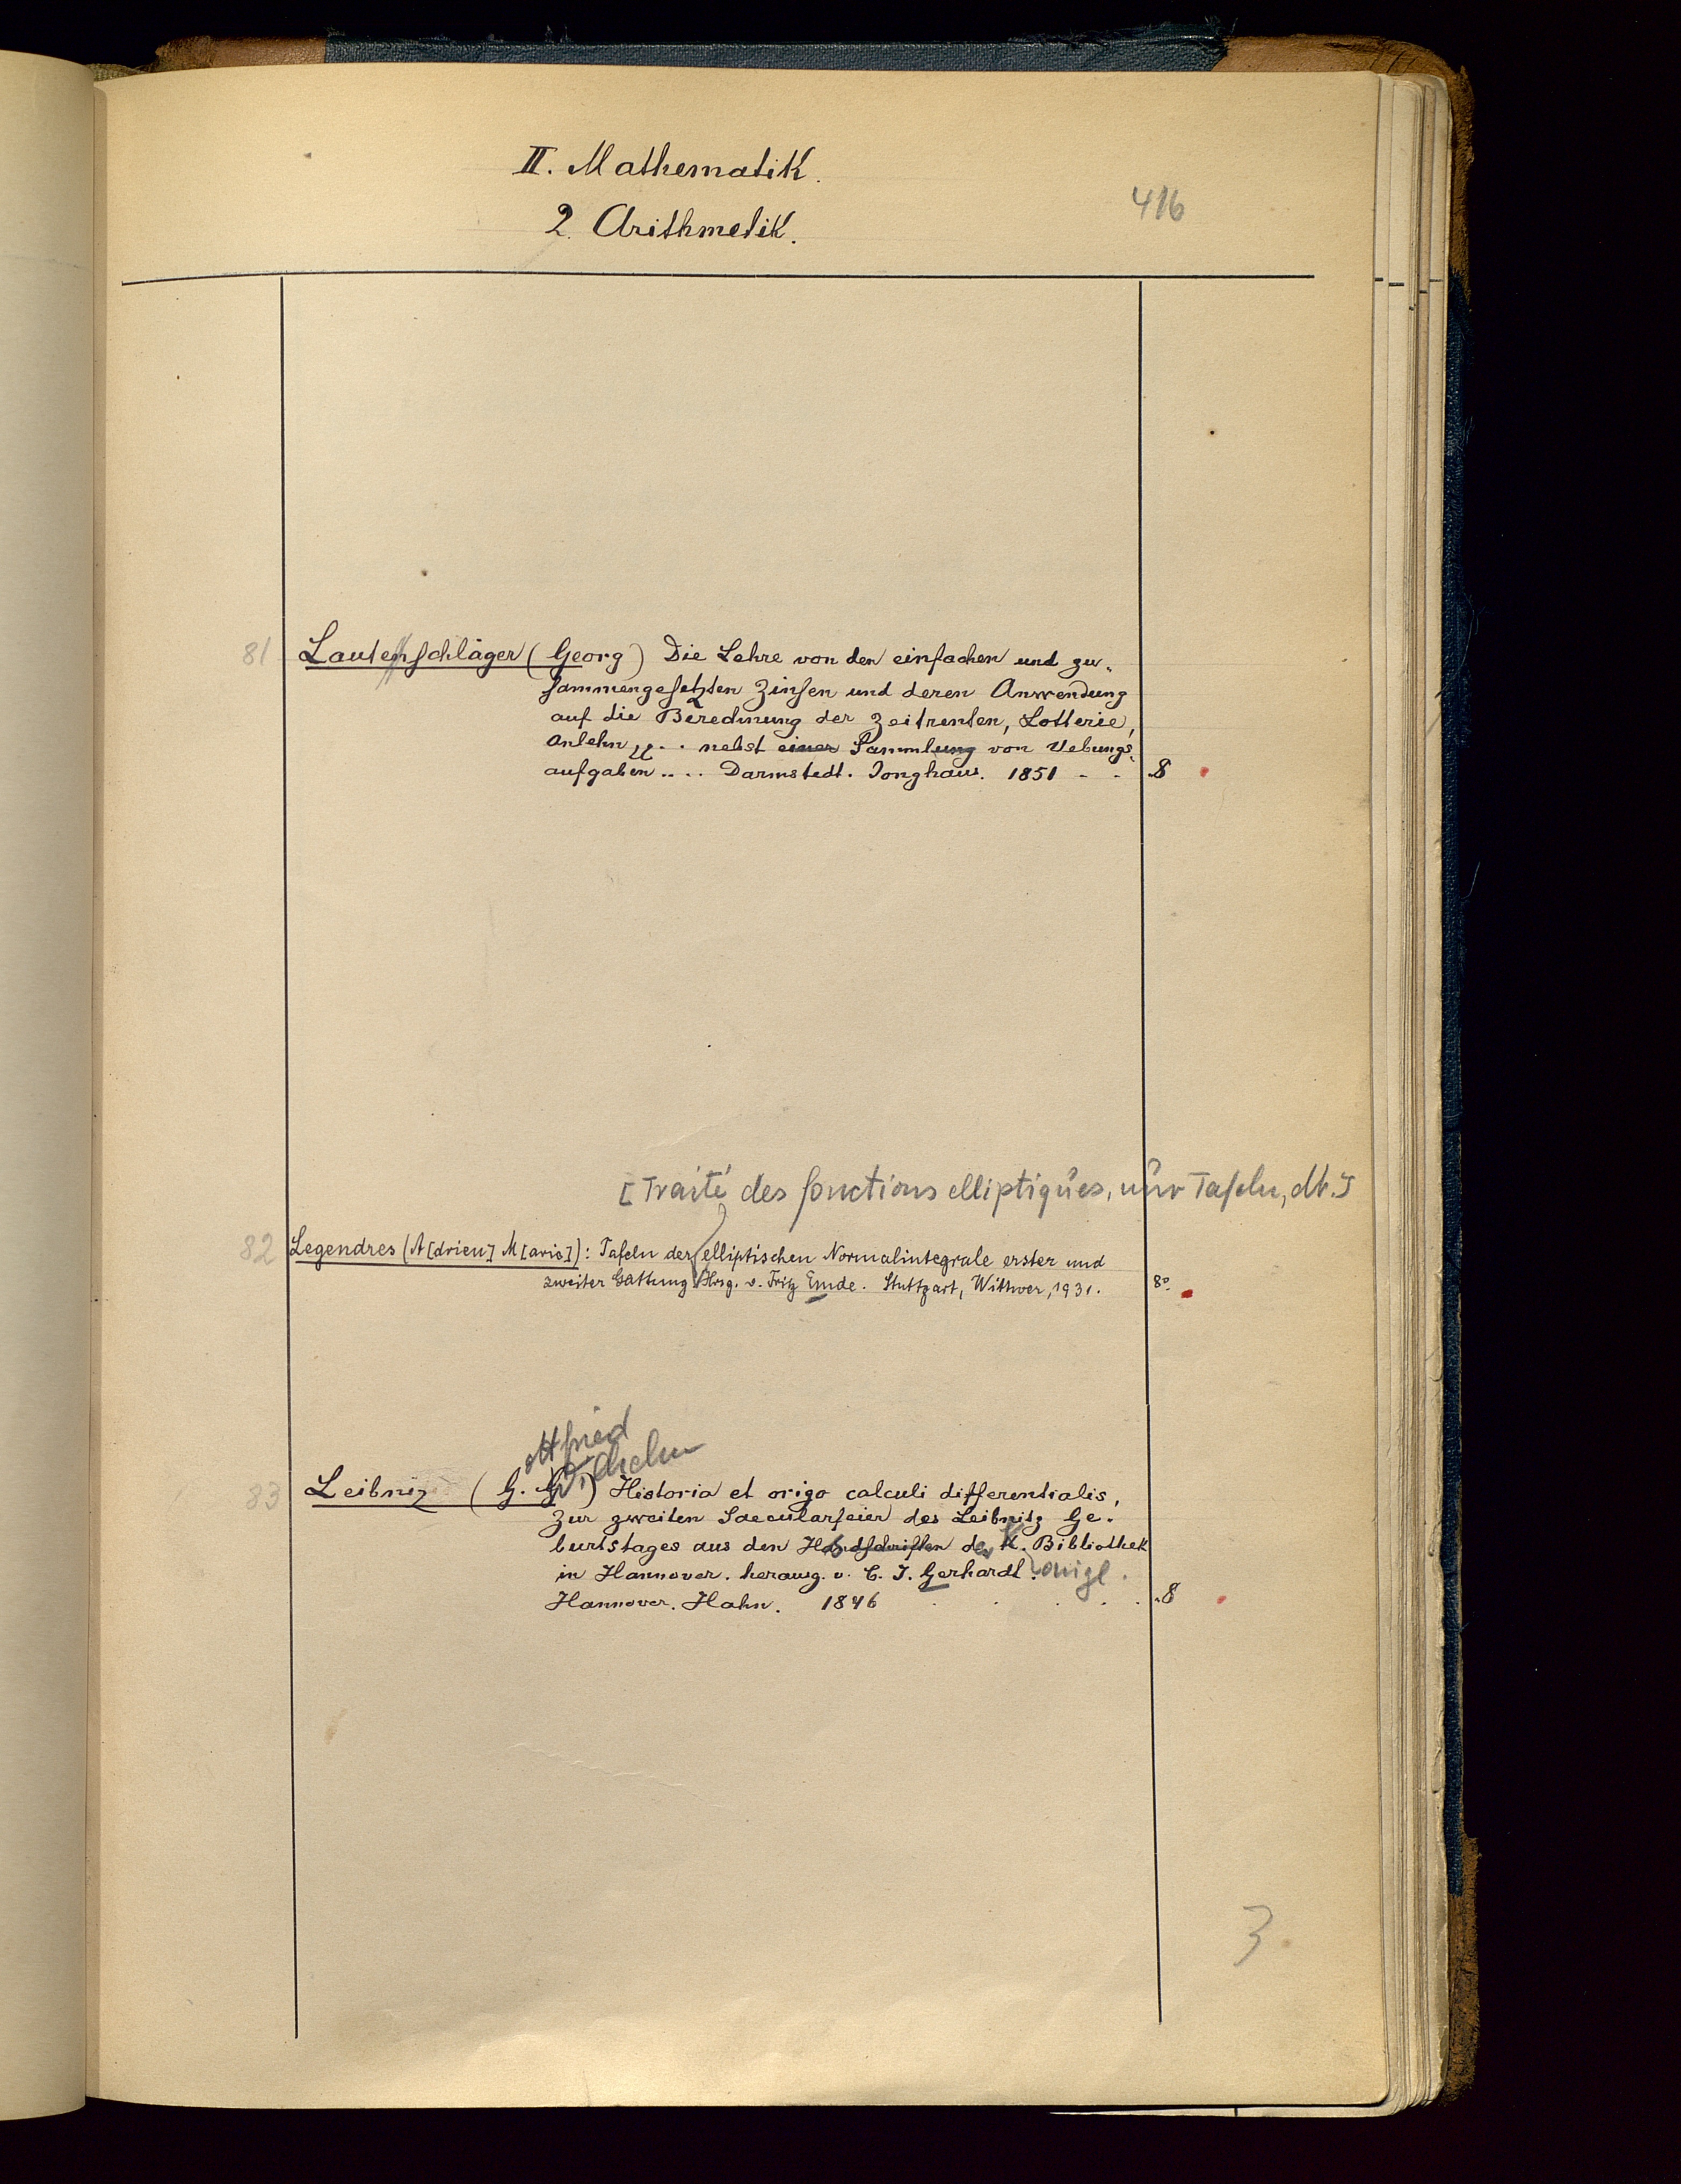 II. Mathematik.
416
2. Arithmetik.
81 Lautenschläger (Georg) Die Lehre von den einfachen und zu-
sammengesetzten Zinsen und deren Anwendung
auf die Berechnung der Zeitrenten, Lotterie,
Anlehn, ... nebst einer Sammlung von Uebungs-
aufgaben .... Darmstedt. Jonghaus. 1851 - - 8
[Traité des fonctions elliptiques, nur Tafeln, dt.]
82 Legendres (A[drien] M[arie]): Tafeln der elliptischen Normalintegrale erster und
zweiter Gattung Hrsg. v. Fritz Emde. Stuttgart, Wittwer, 1931. 8°
ottfried
Wilhelm
83 Leibniz (G. G.) Historia et origo calculi differentialis,
Zur zweiten Saecularfeier des Leibnitz Ge-
burtstages aus den Handschriften der K. Bibliothek
in Hannover. herausg. v. C. J. Gerhardt. önigl.
Hannover. Hahn. 1846 . . . . . 8
3